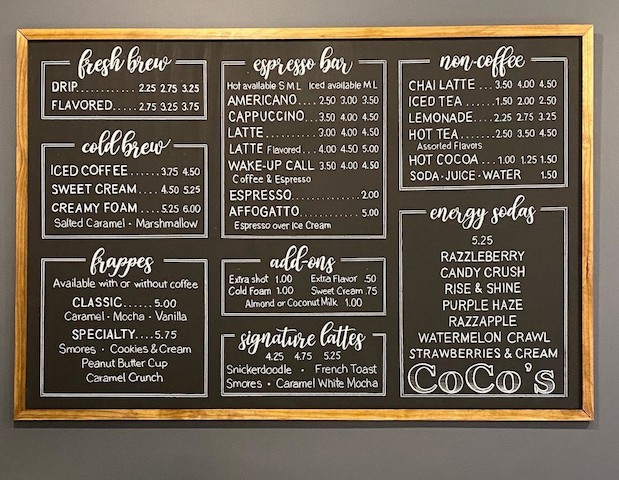 fresh brew
DRIP........... 2.25 2.75 3.25
FLAVORED..... 2.75 3.25 3.75
cold brew
ICED COFFEE......3.75 4.50
SWEET CREAM....4.50 5.25
CREAMY FOAM....5.25 6.00
Salted Caramel · Marshmallow
frappes
Available with or without coffee
CLASSIC.....5.00
Caramel · Mocha · Vanilla
SPECIALTY....5.75
Smores · Cookies & Cream
Peanut Butter Cup
Caramel Crunch
espresso bar
Hot available S M L Iced available M L
AMERICANO.... 2.50 3.00 3.50
CAPPUCCINO...3.50 4.00 4.50
LATTE...........3.00 4.00 4.50
LATTE Flavored....4.00 4.50 5.00
WAKE-UP CALL 3.50 4.00 4.50
Coffee & Espresso
ESPRESSO..............2.00
AFFOGATTO............5.00
Espresso over Ice Cream
add-ons
Extra shot 1.00 Extra Flavor .50
Cold Foam 1.00 Sweet Cream .75
Almond or Coconut Milk 1.00
signature lattes
4.25 4.75 5.25
Snickerdoodle · French Toast
Smores · Caramel White Mocha
non-coffee
CHAI LATTE ...3.50 4.00 4.50
ICED TEA......1.50 2.00 2.50
LEMONADE.....2.25 2.75 3.25
HOT TEA.......2.50 3.50 4.50
Assorted Flavors
HOT COCOA...1.00 1.25 1.50
SODA · JUICE · WATER 1.50
energy sodas
5.25
RAZZLEBERRY
CANDY CRUSH
RISE & SHINE
PURPLE HAZE
RAZZAPPLE
WATERMELON CRAWL
STRAWBERRIES & CREAM
CoCo's